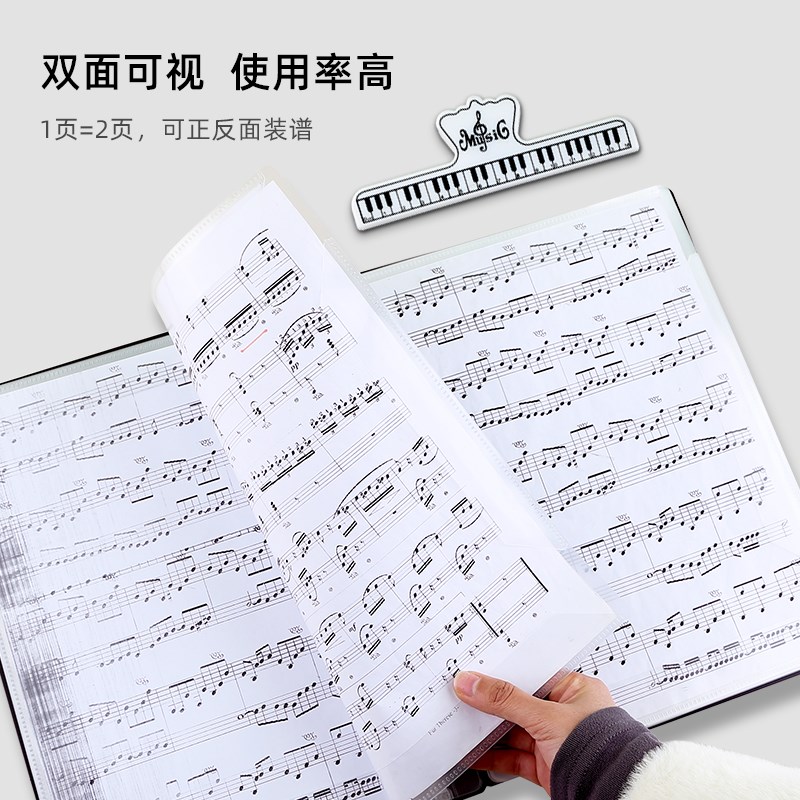 双面可视 使用率高
1页=2页，可正反面装谱
Music